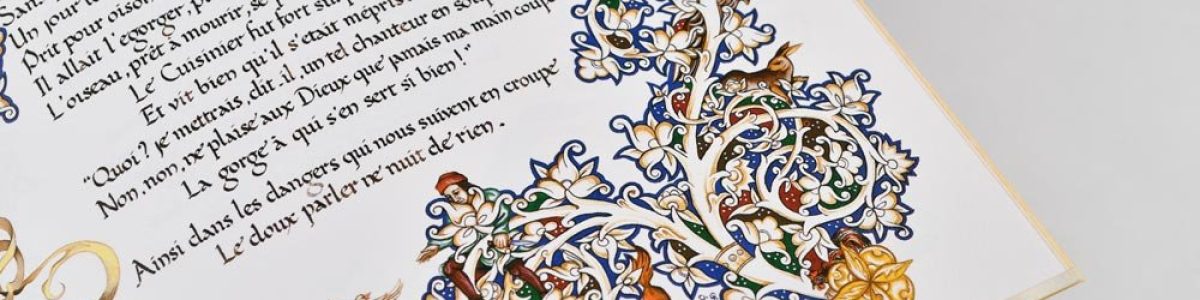 San
Un jour le
Prit pour oison
Il allait l'égorger, p
L'oiseau, prêt à mourir, se
Le Cuisinier fut fort sur
Et vit bien qu'il s'était mépris
"Quoi? je mettrais, dit-il, un tel chanteur en soup
Non, non, ne plaise aux Dieux que jamais ma main coupe
La gorge à qui s'en sert si bien!"
Ainsi dans les dangers qui nous suivent en croupe
Le doux parler ne nuit de rien.